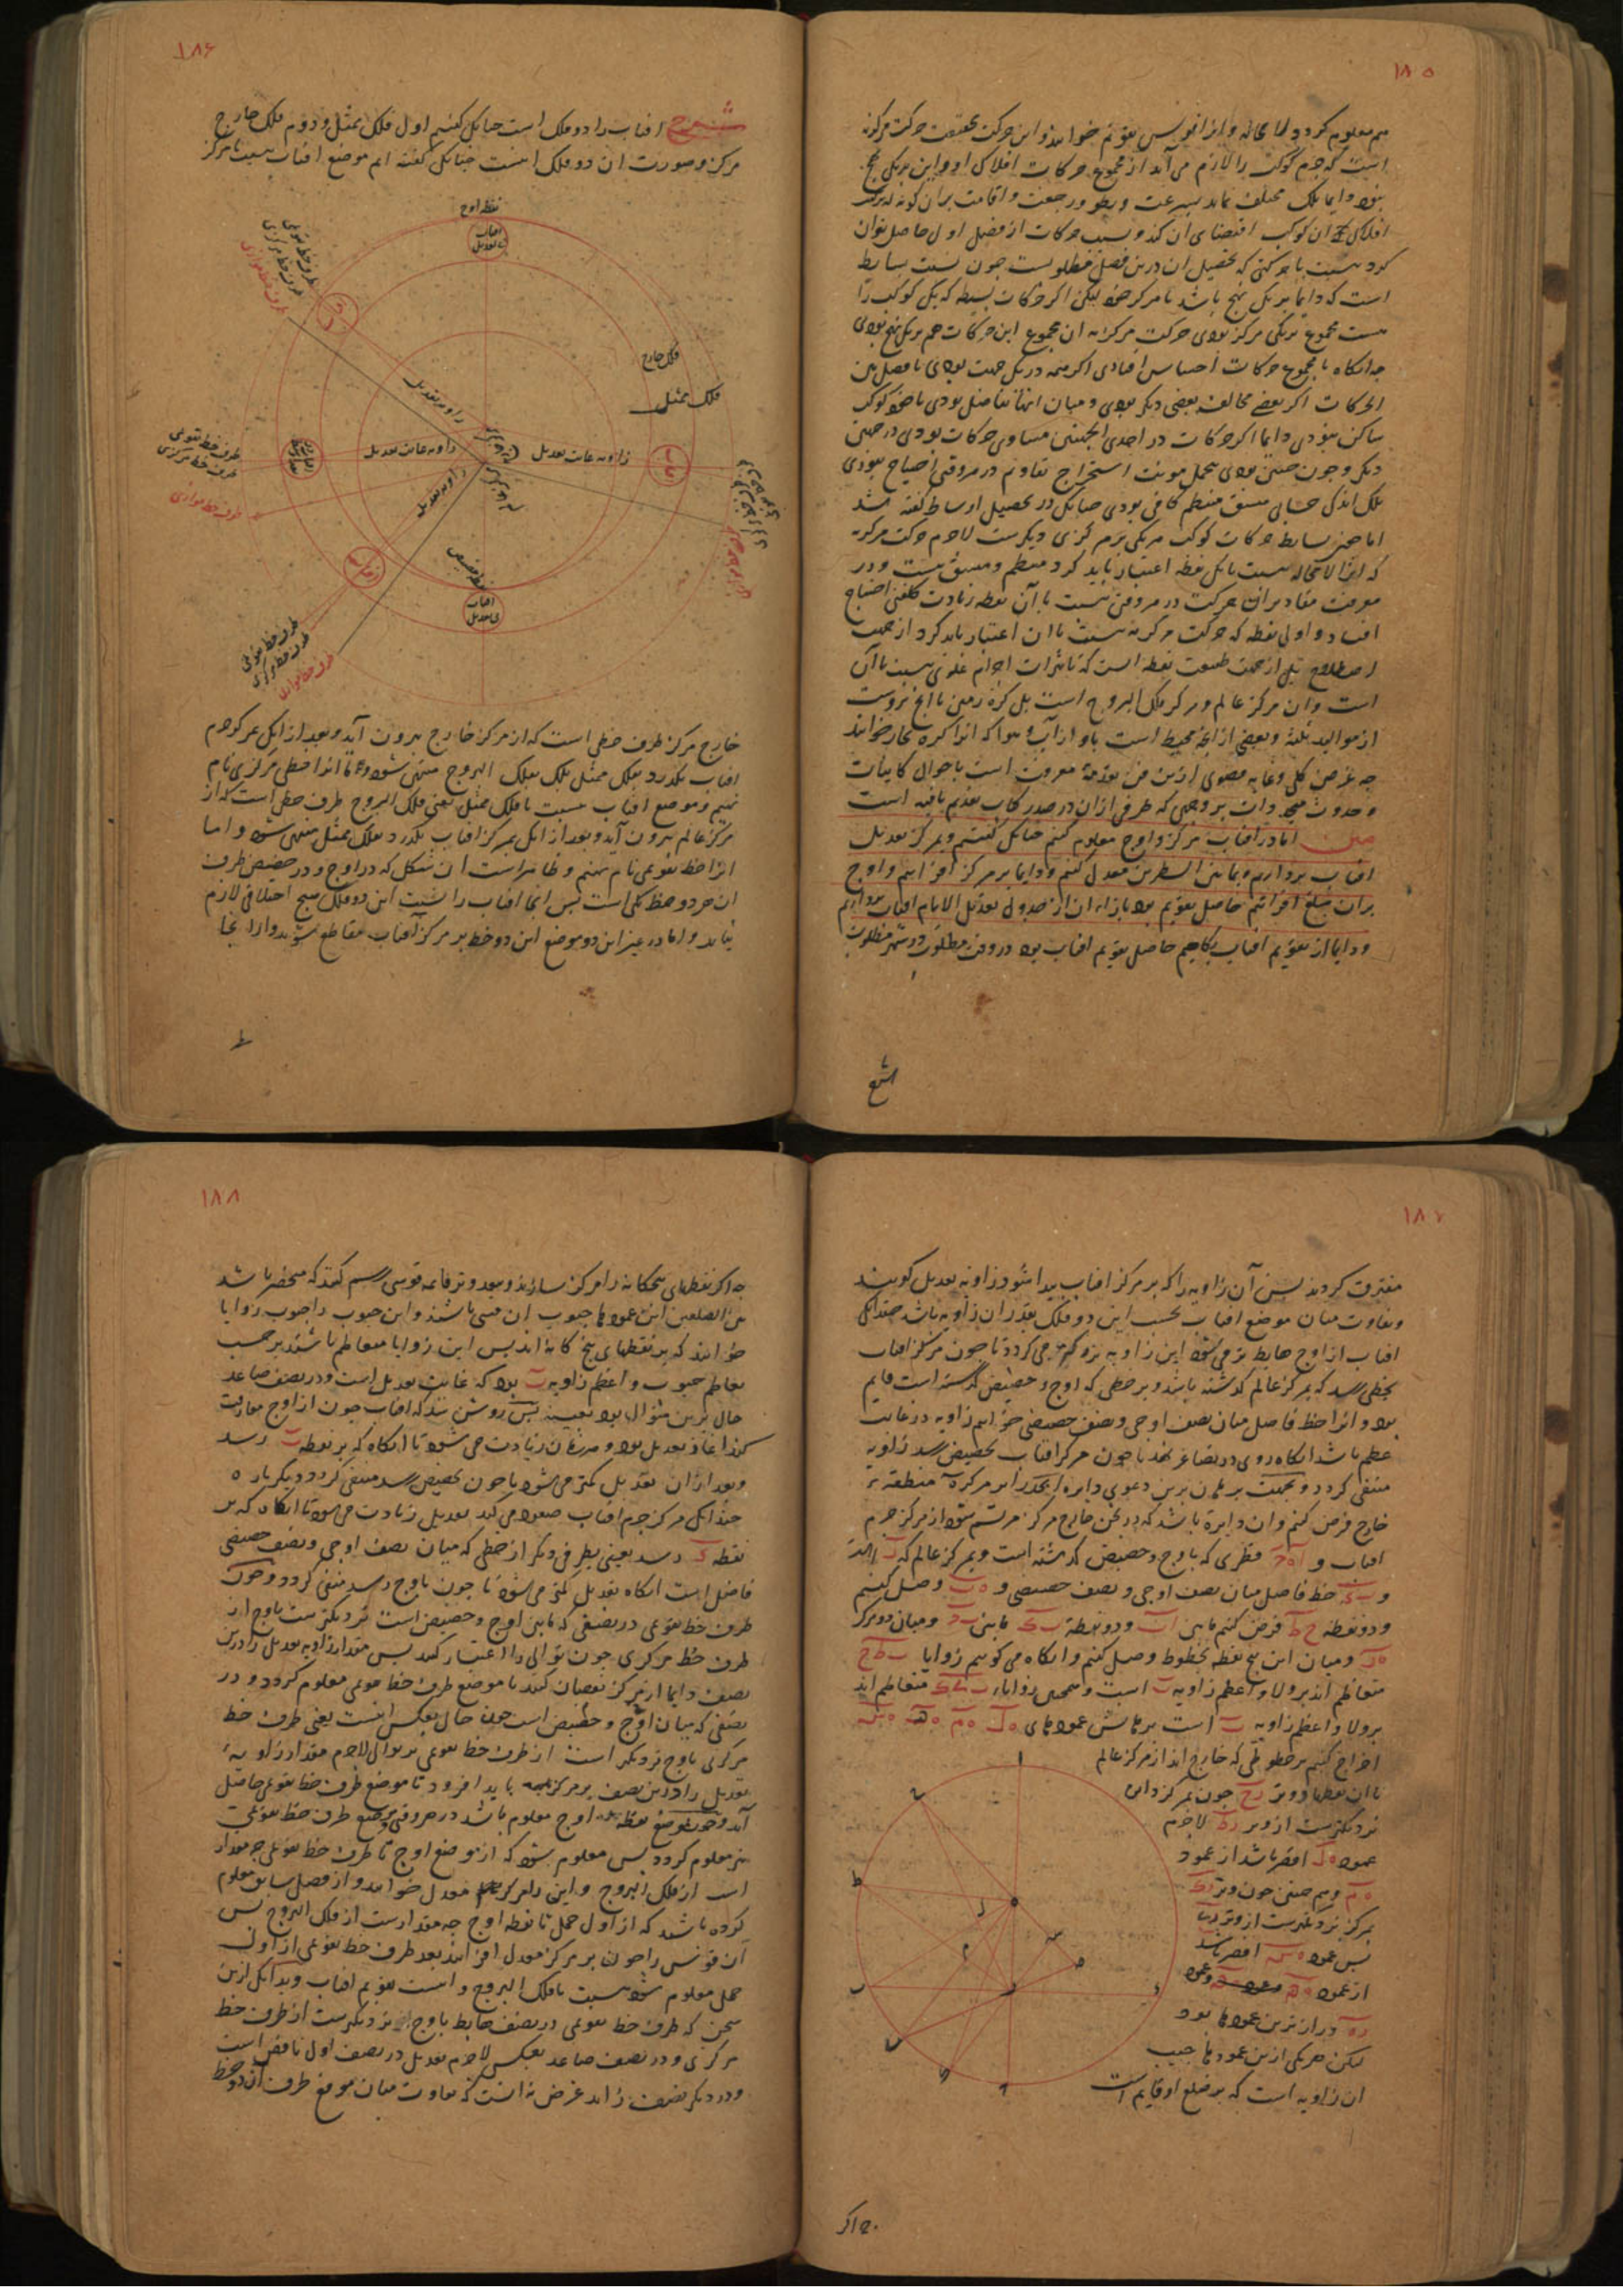 ۱۸۵
هم معلوم کردد لا محاله و انرا تقویم خوانند و این حرکت بحقیقت حرکت مرکزیه
است که جرم کوکب را لازم می آید از مجموع حرکات افلاک او و این بر یک نهج
نبود و ایما یک مختلف نماید بسرعت و بطو و رجعت و اقامت بران کونه که ترکیب
افلاک آن کوکب اقتضای ان کند و نسبت حرکات از فصل اول حاصل توان
کرد نسبت با حرکتی که تحصیل ان درین فصل مطلوبست چون نسبت بسایط
است که دایما بر یک نهج باشد با مرکز خود لیکن اکر حرکات بسیطه که یک کوکب را
هست مجموع بر یک مرکز بودی حرکت مرکزیه ان مجموع این حرکات هم بر یک نهج بودی
چه انکاه با مجموع حرکات احساس افتادی اکر همه در یک جهت بودی یا فضل بین
الحرکات اکر بعضی مخالف بعضی دیکر بودی و میان انها تفاضل بودی یا خود کوکب
ساکن نمودی دایما اکر حرکات در احدی الجهتین مساوی حرکات بودی در جهت
دیکر و چون چنین بودی تحمل مونت استخراج تقاویم در هر وقتی احتیاج نبودی
بلک اندک حسابی متسق منتظم کافی بودی چنانک در تحصیل اوساط کفته شد
اما چون بسایط حرکات کوکب هر یکی بر مرکزی دیکرست لاجرم حرکت مرکزیه
که انرا لامحاله نسبت با یک نقطه اعتبار باید کرد منتظم و متسق نیست و در
معرفت مقادیر ان حرکت در هر وقتی نسبت با آن نقطه زیادت کلفتی احتیاج
افتاد و اولی نقطه که حرکت مرکزیه نسبت با ان اعتبار باید کرد از جهت
اصطلاح بل از جهت طبیعت نقطه است که تاثیرات اجرام علوی نسبت با آن
است و ان مرکز عالم و مرکز فلک البروج است بل کره زمین با انچ بروست
از موالید ثلثه و بعضی از انچه محیط است باو از آب و هوا که انرا کره بخار خوانند
چه غرض کلی و غایه قصوی ازین فن تقدمه معرفت است باحوال کاینات
و حدوث متجددات بر وجهی که طرفی ازان در صدر کتاب تقدیم یافته است
متن اما در افتاب مرکز و اوج معلوم کنیم چنانک کفتیم و بمرکز تعدیل
افتاب برداریم و بما بین السطرین معدل کنیم و دایما بر مرکز افزاییم و اوج
بران مبلغ افزاییم حاصل تقویم بود بازاء ان از جدول تعدیل الایام افتاب برداریم
و دایما از تقویم افتاب بکاهیم حاصل تقویم افتاب بود در وقت مطلوب در شهر مطلوب
شرح
۱۸۶
شرح افتاب را دو فلک است چنانک کفتیم اول فلک ممثل و دوم فلک خارج
مرکز و صورت ان دو فلک اینست چنانک کفته ایم موضع افتاب نسبت با مرکز
نقطه اوج
افتاب
بی تعدیل
طرف خط تقویمی
طرف خط مرکزی
طرف خط موازی
فلک خارج
فلک ممثل
زاویه تعدیل
زاویه غایت تعدیل
زاویه غایت تعدیل
طرف خط تقویمی
طرف خط مرکزی
طرف خط موازی
زاویه تعدیل
نقطه حضیض
افتاب
بی تعدیل
طرف خط تقویمی
طرف خط مرکزی
طرف خط موازی
خارج مرکز طرف خطی است که از مرکز خارج بیرون آید و بعد از انک بمرکز جرم
افتاب بکذرد بفلک ممثل بلک بفلک البروج منتهی شود و ما انرا خط مرکزی نام
نهیم و موضع افتاب نسبت با فلک ممثل یعنی فلک البروج طرف خطی است که از
مرکز عالم بیرون آید و بعد از انک بمرکز افتاب بکذرد بفلک ممثل منتهی شود و اما
انرا خط تقویمی نام نهیم و ظاهرست ازان شکل که در اوج و در حضیض طرف
ان هر دو خط یکی است پس انجا افتاب را نسبت این دو فلک هیچ اختلافی لازم
نیاید و اما در غیر این دو موضع این دو خط بر مرکز آفتاب متقاطع شوند و از انجا
۱۸۷
مفترق کردند پس آن زاویه را که بر مرکز افتاب پیدا شود زاویه تعدیل کویند
و تفاوت میان موضع افتاب بحسب این دو فلک بقدر ان زاویه باشد چندانک
افتاب از اوج هابط تر می شود این زاویه بزرکتر می کردد تا چون مرکز افتاب
بخطی رسد که بمرکز عالم کذشته باشد و بر خطی که اوج و حضیض کذشته است قایم
بود و انرا خط فاصل میان نصف اوجی و نصف حضیضی خوانیم زاویه در غایت
عظم باشد انکاه روی در تصاغر نهد تا چون مرکز افتاب بحضیض رسد زاویه
منتفی کردد و بجهت برهان برین دعوی دایره ابجد را بر مرکز ه منطقه
خارج فرض کنیم و ان دایره باشد که در ثخن خارج مرکز مرتسم شود از مرکز جرم
افتاب و قطری که باوج و حضیض کذشته است و بمرکز عالم که
و خط فاصل میان نصف اوجی و نصف حضیضی و وصل کنیم
و دو نقطه ح ط فرض کنیم مابین ا ب و دو نقطه مابین و میان دو مرکز
و میان این پنج نقطه بخطوط وصل کنیم و انکاه می کوییم زوایا
متعاظم اند بر ولا و اعظم زاویه است و همچنین زوایاء متعاظم اند
بر ولا و اعظم زاویه است برهانش عمودهای
اخراج کنیم بر خطوطی که خارج اند از مرکز عالم
با ان نقطها و وتر رح چون بمرکز دایره
نزدیکترست از وتر رط لاجرم
عمود اقصر باشد از عمود
و هم چنین چون وتر
بمرکز نزدیکترست از وتر
پس عمود اقصر باشد
از عمود و عمود
درازترین عمودها بود
لیکن هر یکی ازین عمودها جیب
ان زاویه است که بر ضلع او قایم است
ه اکر
۱۸۸
چه اکر نقطهای پنجکانه را مرکز سازند و ببعد وتر قایمه قوسی رسم کنند که منحصر باشد
بین الضلعین این عمودها جیوب ان قسی باشند و این جیوب را جیوب زوایا
خوانند که بر نقطهای پنج کانه اند پس این زوایا متعاظم باشند بر حسب
تعاظم جیوب و اعظم زاویه ب بود که غایت تعدیل است و در نصف صاعد
حال برین منوال بود بعینه پس روشن شد که افتاب چون از اوج مفارقت
کند اغاز تعدیل بود و هر زمان زیادت می شود تا انکاه که بر نقطه ب رسد
و بعد ازان تعدیل کمتر می شود تا چون بحضیض رسد منتفی کردد و دیکر باره
چندانک مرکز جرم افتاب صعود می کند تعدیل زیادت می شود تا انکاه که بر
نقطه رسد یعنی بطرفی دیکر از خطی که میان نصف اوجی و نصف حضیضی
فاصل است انکاه تعدیل کمتر می شود تا چون باوج رسد منتفی کردد و چون
طرف خط تقویمی در نصفی که مابین اوج و حضیض است نزدیکترست باوج از
طرف خط مرکزی چون توالی را اعتبار کنند پس مقدار زاویه تعدیل را درین
نصف دایما از مرکز نقصان کنند تا موضع طرف خط تقویمی معلوم کردد و در
نصفی که میان اوج و حضیض است چون حال بعکس اینست یعنی طرف خط
مرکزی باوج نزدیکتر است از طرف خط تقویمی بر توالی لاجرم مقدار زاویه
تعدیل را درین نصف بر مرکز باید افزود تا موضع طرف خط تقویمی حاصل
آید و چون موضع نقطه اوج معلوم باشد در هر وقتی موضع طرف خط تقویمی
نیز معلوم کردد پس معلوم شود که از موضع اوج تا طرف خط تقویمی چه مقدار
است از فلک البروج و این را مرکز معدل خوانند و از فصل سابق معلوم
کرده باشند که از اول حمل تا نقطه اوج چه مقدارست از فلک البروج پس
آن قوس را چون بر مرکز معدل افزایند بعد طرف خط تقویمی از اول
حمل معلوم شود نسبت بافلک البروج و اینست تقویم افتاب و بدانک ازین
سخن که طرف خط تقویمی در نصف هابط باوج نزدیکترست از طرف خط
مرکزی و در نصف صاعد بعکس لاجرم تعدیل در نصف اول ناقص است
و در دیکر نصف زاید غرض نه انست که تفاوت میان موقع طرف ان دو خط